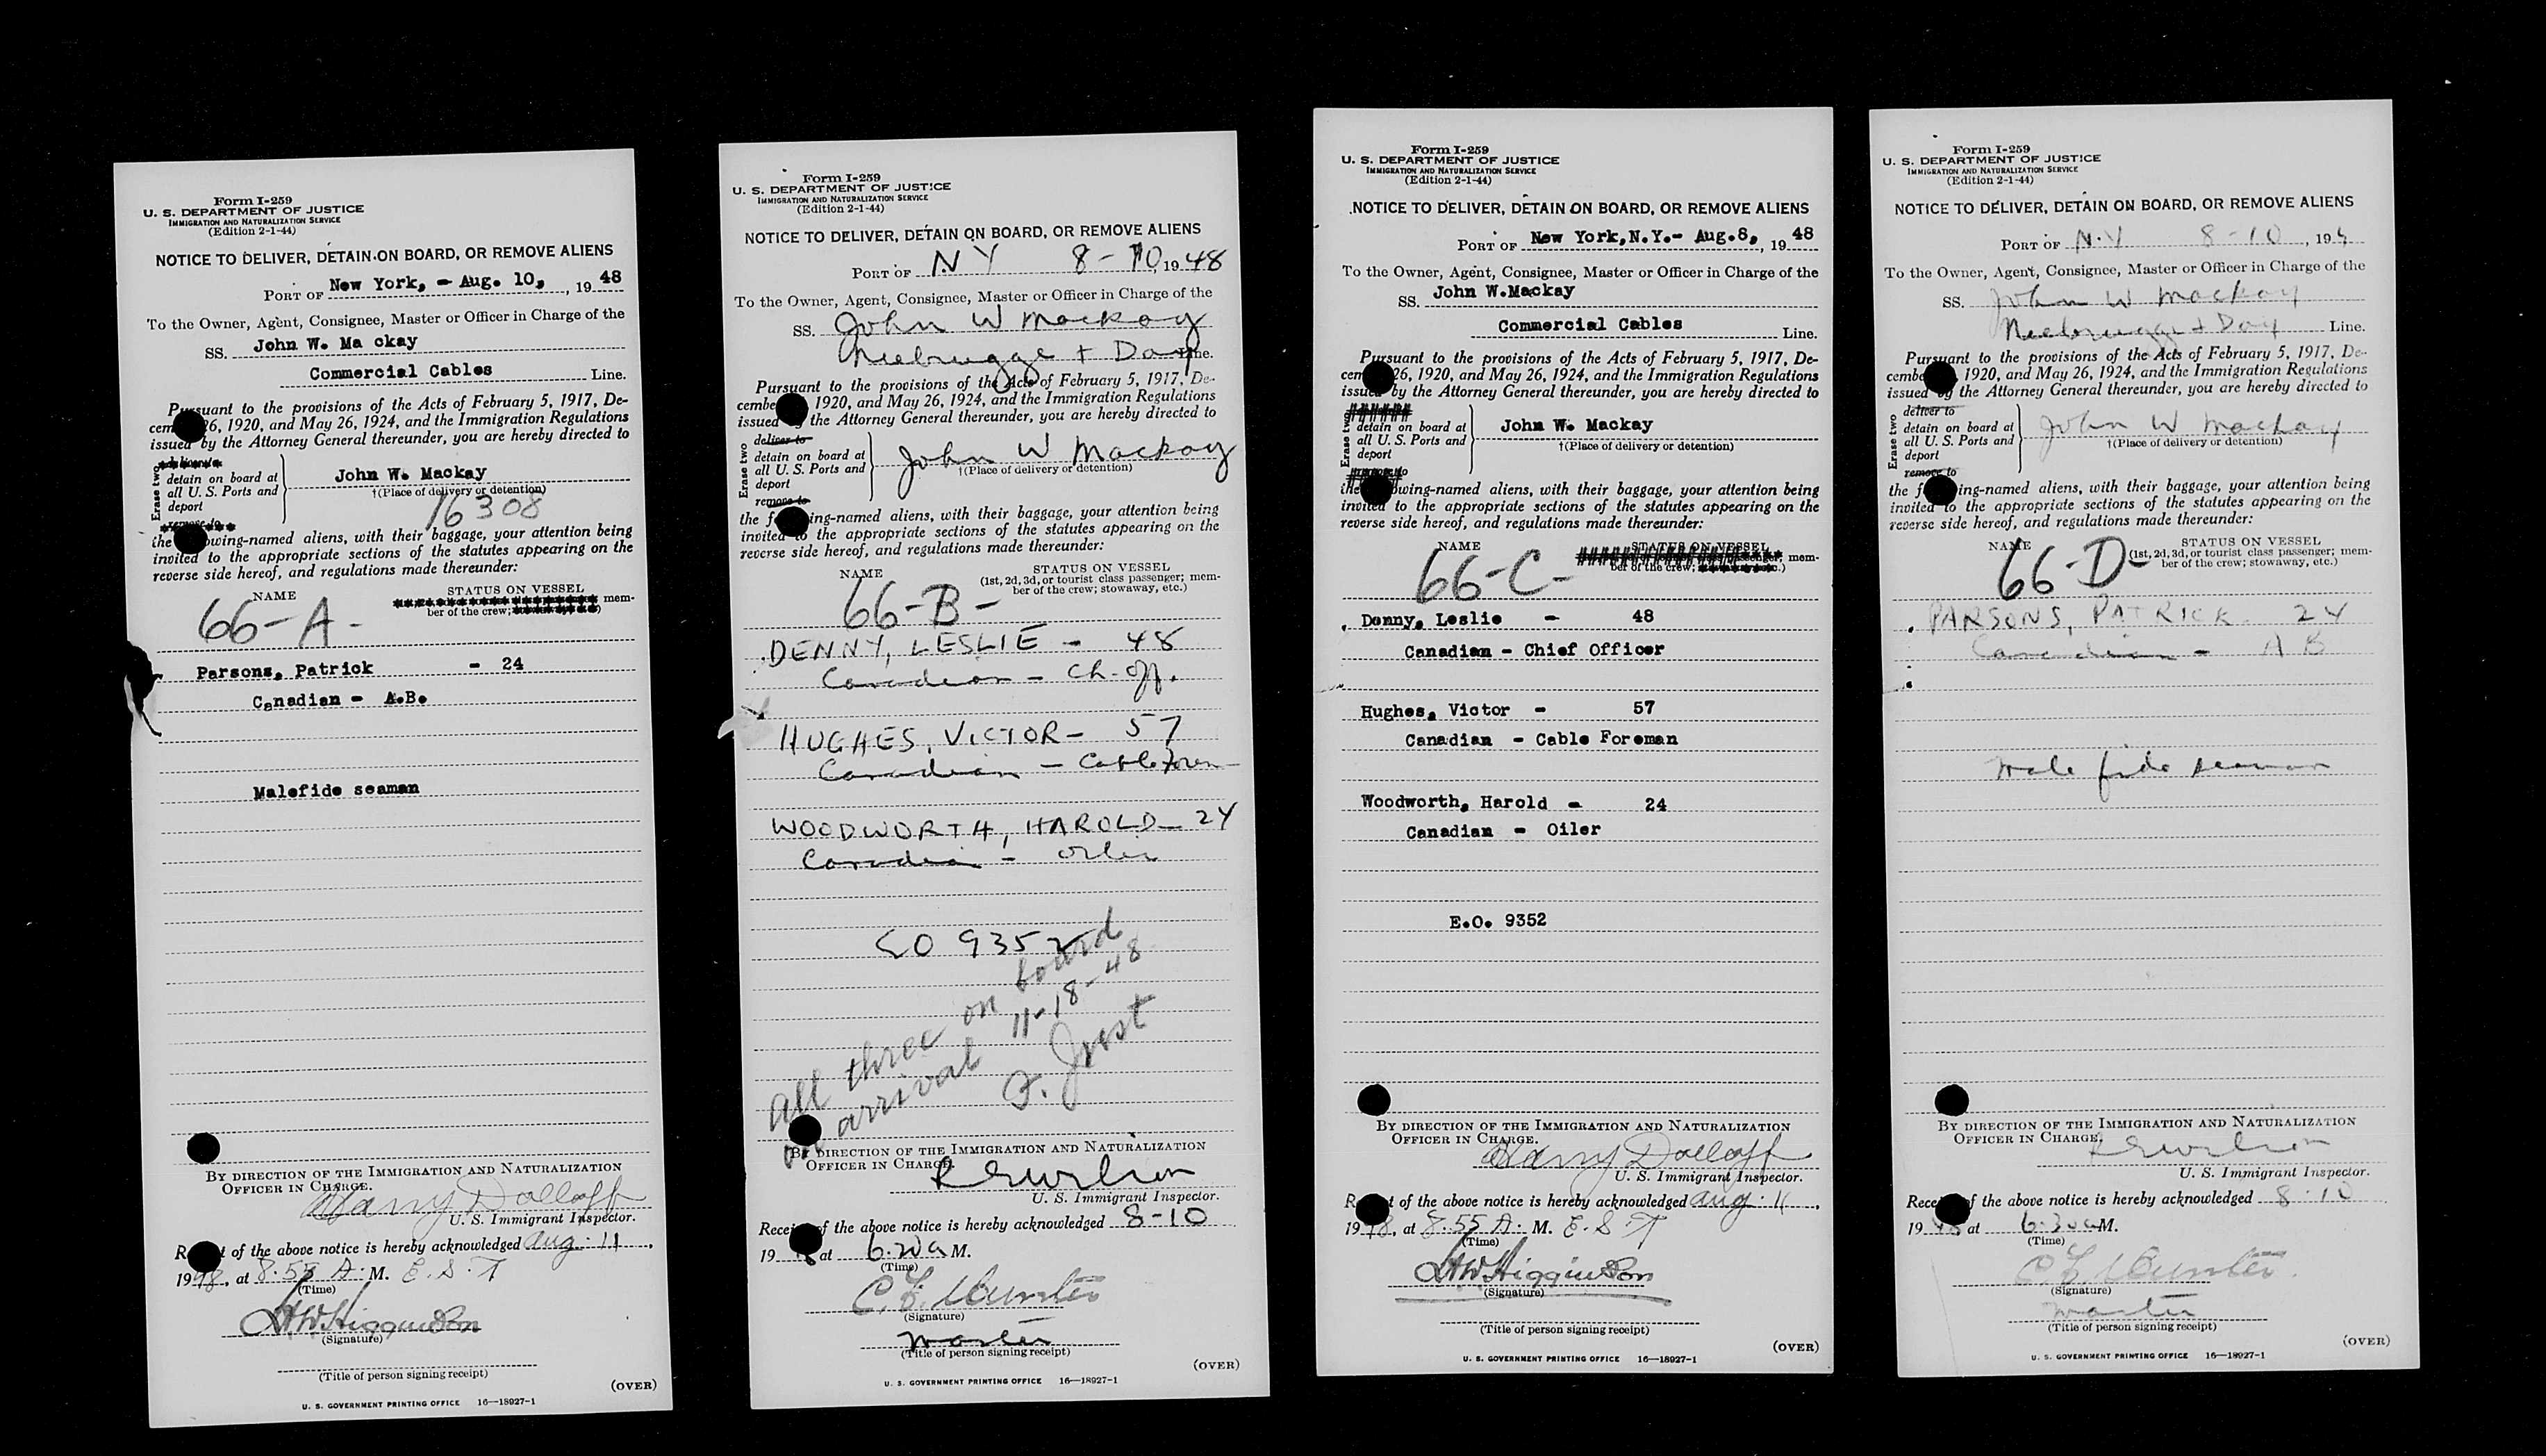 Form I-259
U. S. DEPARTMENT OF JUSTICE
IMMIGRATION AND NATURALIZATION SERVICE
(Edition 2-1-44)
NOTICE TO DELIVER, DETAIN ON BOARD, OR REMOVE ALIENS
PORT OF New York, - Aug. 10, , 19 48
To the Owner, Agent, Consignee, Master or Officer in Charge of the
SS. John W. Ma ckay
Commercial Cables Line.
Pursuant to the provisions of the Acts of February 5, 1917, De-
cem 26, 1920, and May 26, 1924, and the Immigration Regulations
issued by the Attorney General thereunder, you are hereby directed to
Erase two
detain on board at
all U. S. Ports and
deport
remove to
John W. Mackay
†(Place of delivery or detention)
16308
the owing-named aliens, with their baggage, your attention being
invited to the appropriate sections of the statutes appearing on the
reverse side hereof, and regulations made thereunder:
NAME STATUS ON VESSEL
mem-
ber of the crew;
66-A-
Parsons, Patrick - 24
Canadian - A.B.
Malefide seaman
BY DIRECTION OF THE IMMIGRATION AND NATURALIZATION
OFFICER IN CHARGE.
Harry Dolloff
U. S. Immigrant Inspector.
R t of the above notice is hereby acknowledged Aug. 11,
1948, at 8.55 A. M. E.S.T
(Time)
HW Higginson
(Signature)
(Title of person signing receipt)
(OVER)
U. S. GOVERNMENT PRINTING OFFICE 16—18927-1
Form I-259
U. S. DEPARTMENT OF JUSTICE
IMMIGRATION AND NATURALIZATION SERVICE
(Edition 2-1-44)
NOTICE TO DELIVER, DETAIN ON BOARD, OR REMOVE ALIENS
PORT OF N Y 8-10, 1948
To the Owner, Agent, Consignee, Master or Officer in Charge of the
SS. John W Mackay
Neebrugge + Day Line.
Pursuant to the provisions of the Acts of February 5, 1917, De-
cembe 1920, and May 26, 1924, and the Immigration Regulations
issued by the Attorney General thereunder, you are hereby directed to
Erase two
deliver to
detain on board at
all U. S. Ports and
deport
remove to
John W Mackay
†(Place of delivery or detention)
the f ing-named aliens, with their baggage, your attention being
invited to the appropriate sections of the statutes appearing on the
reverse side hereof, and regulations made thereunder:
NAME STATUS ON VESSEL
(1st, 2d, 3d, or tourist class passenger; mem-
ber of the crew; stowaway, etc.)
66-B-
DENNY, LESLIE - 48
Canadian - Ch. Off.
HUGHES, VICTOR - 57
Canadian - Cable Forem
WOODWORTH, HAROLD - 24
Canadian - Oiler
EO 9352
All three on board
on arrival 11-18-48
F. Jrest
BY DIRECTION OF THE IMMIGRATION AND NATURALIZATION
OFFICER IN CHARGE.
U. S. Immigrant Inspector.
Recei of the above notice is hereby acknowledged 8-10
19 8 at 6.20a M.
(Time)
C. F.
(Signature)
Master
(Title of person signing receipt)
(OVER)
U. S. GOVERNMENT PRINTING OFFICE 16—18927-1
Form I-259
U. S. DEPARTMENT OF JUSTICE
IMMIGRATION AND NATURALIZATION SERVICE
(Edition 2-1-44)
NOTICE TO DELIVER, DETAIN ON BOARD, OR REMOVE ALIENS
PORT OF New York, N.Y.- Aug.8, , 19 48
To the Owner, Agent, Consignee, Master or Officer in Charge of the
SS. John W.Mackay
Commercial Cables Line.
Pursuant to the provisions of the Acts of February 5, 1917, De-
cem 26, 1920, and May 26, 1924, and the Immigration Regulations
issued by the Attorney General thereunder, you are hereby directed to
Erase two
detain on board at
all U. S. Ports and
deport
John W. Mackay
†(Place of delivery or detention)
the owing-named aliens, with their baggage, your attention being
invited to the appropriate sections of the statutes appearing on the
reverse side hereof, and regulations made thereunder:
NAME STATUS ON VESSEL
mem-
ber of the crew;
66-C-
Denny, Leslie - 48
Canadian - Chief Officer
Hughes, Victor - 57
Canadian - Cable Foreman
Woodworth, Harold - 24
Canadian - Oiler
E.O. 9352
BY DIRECTION OF THE IMMIGRATION AND NATURALIZATION
OFFICER IN CHARGE.
Harry Dolloff
U. S. Immigrant Inspector.
R t of the above notice is hereby acknowledged Aug. 11,
1948, at 8.55 A. M. E.S.T
(Time)
HW Higginson
(Signature)
(Title of person signing receipt)
(OVER)
U. S. GOVERNMENT PRINTING OFFICE 16—18927-1
Form I-259
U. S. DEPARTMENT OF JUSTICE
IMMIGRATION AND NATURALIZATION SERVICE
(Edition 2-1-44)
NOTICE TO DELIVER, DETAIN ON BOARD, OR REMOVE ALIENS
PORT OF N.Y 8-10, 194
To the Owner, Agent, Consignee, Master or Officer in Charge of the
SS. John W Mackay
Neebrugge + Day Line.
Pursuant to the provisions of the Acts of February 5, 1917, De-
cembe 1920, and May 26, 1924, and the Immigration Regulations
issued by the Attorney General thereunder, you are hereby directed to
Erase two
deliver to
detain on board at
all U. S. Ports and
deport
remove to
John W Mackay
†(Place of delivery or detention)
the f ing-named aliens, with their baggage, your attention being
invited to the appropriate sections of the statutes appearing on the
reverse side hereof, and regulations made thereunder:
NAME STATUS ON VESSEL
(1st, 2d, 3d, or tourist class passenger; mem-
ber of the crew; stowaway, etc.)
66-D-
PARSONS, PATRICK 24
Canadian - A B
Male fide seaman
BY DIRECTION OF THE IMMIGRATION AND NATURALIZATION
OFFICER IN CHARGE.
U. S. Immigrant Inspector.
Rece f the above notice is hereby acknowledged 8.10
1948, at 6.30a M.
(Time)
C. F.
(Signature)
Master
(Title of person signing receipt)
(OVER)
U. S. GOVERNMENT PRINTING OFFICE 16—18927-1